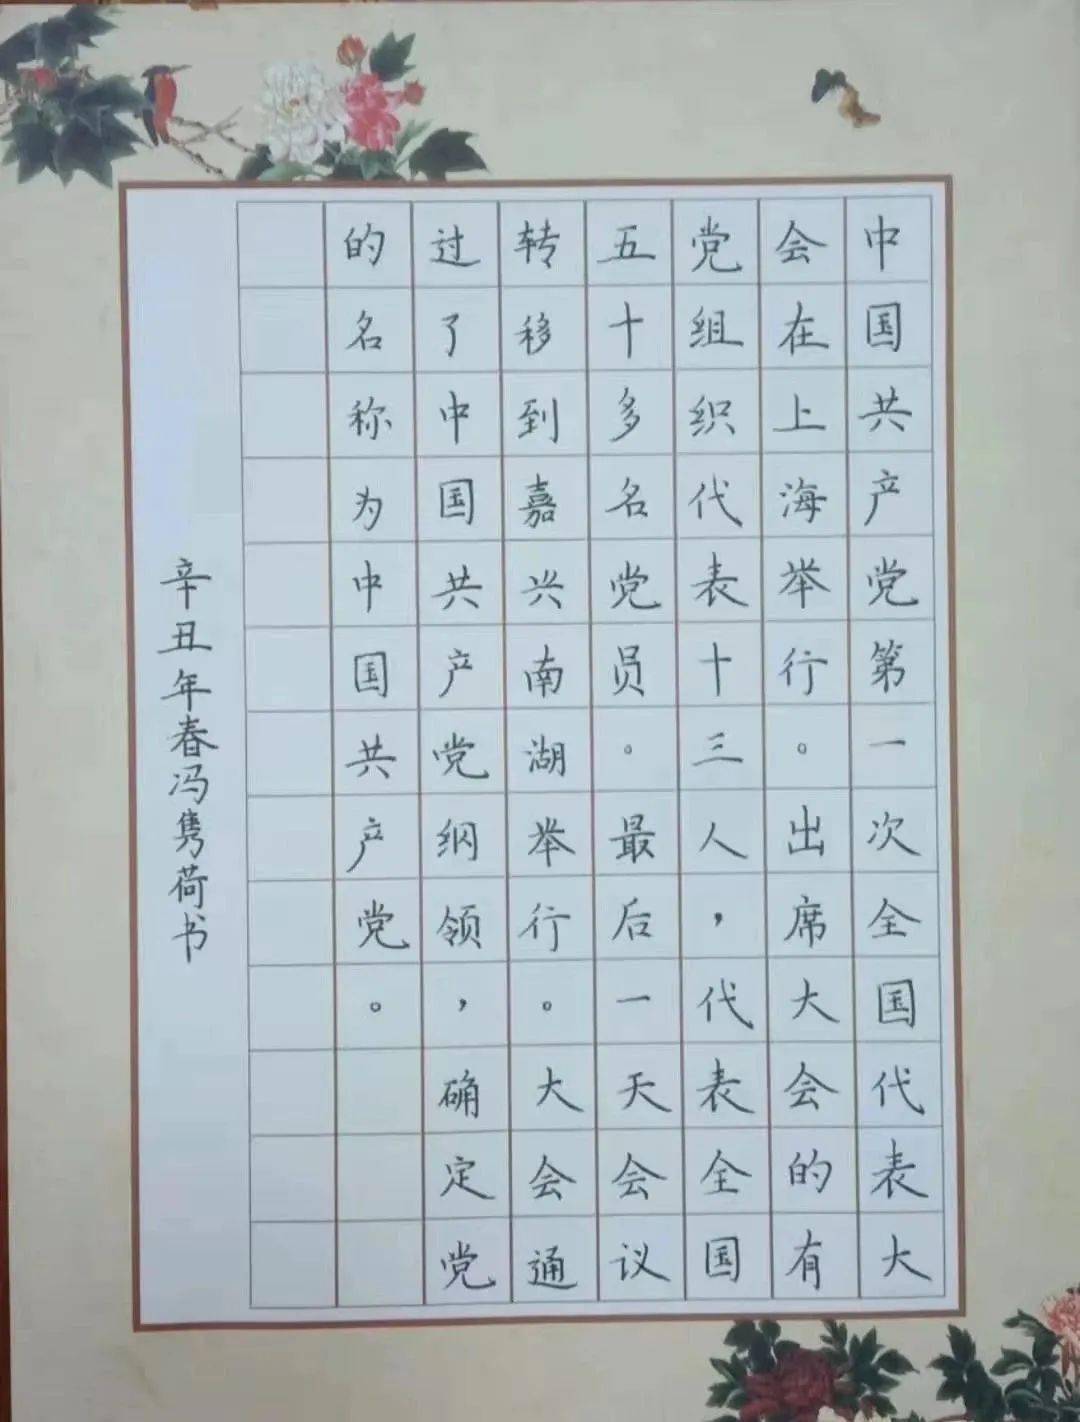 中国共产党第一次全国代表大
会在上海举行。出席大会的有
党组织代表十三人，代表全国
五十多名党员。最后一天会议
转移到嘉兴南湖举行。大会通
过了中国共产党纲领，确定党
的名称为中国共产党。
辛丑年春冯隽荷书